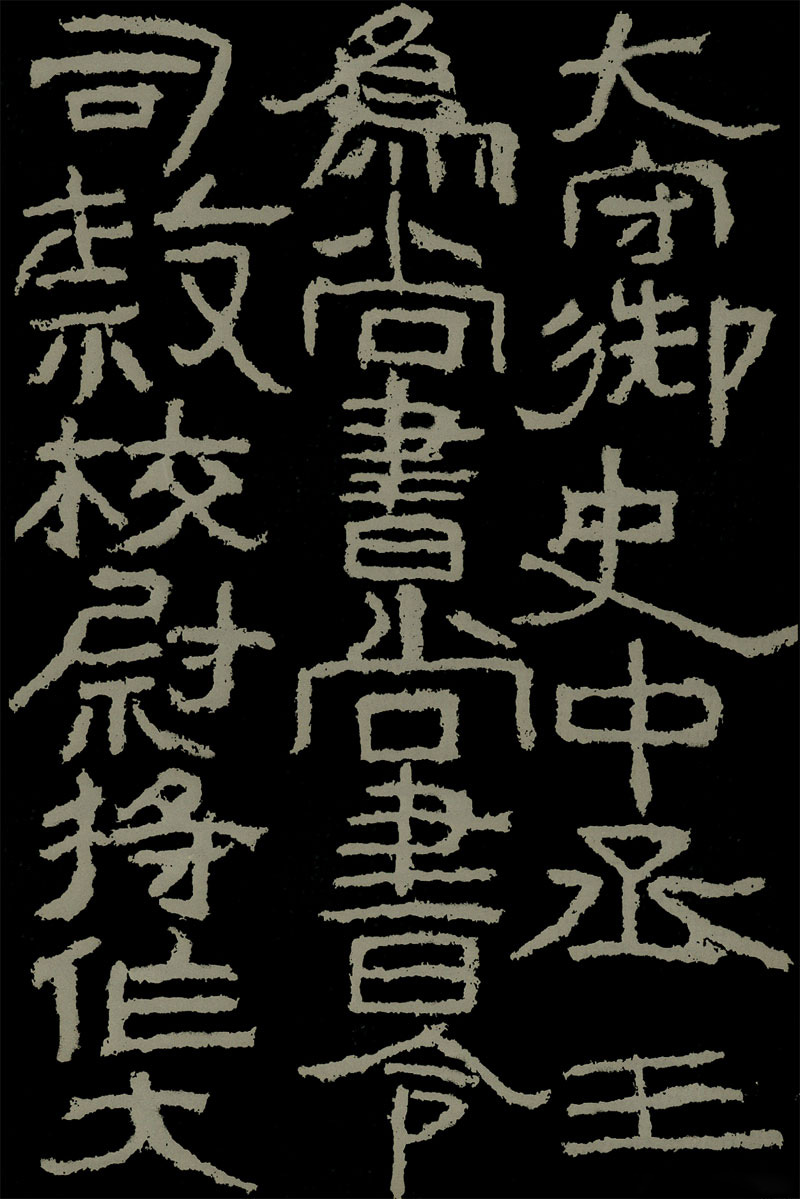 大守御史中丞三
爲尚書尚書令
司隸校尉將作大